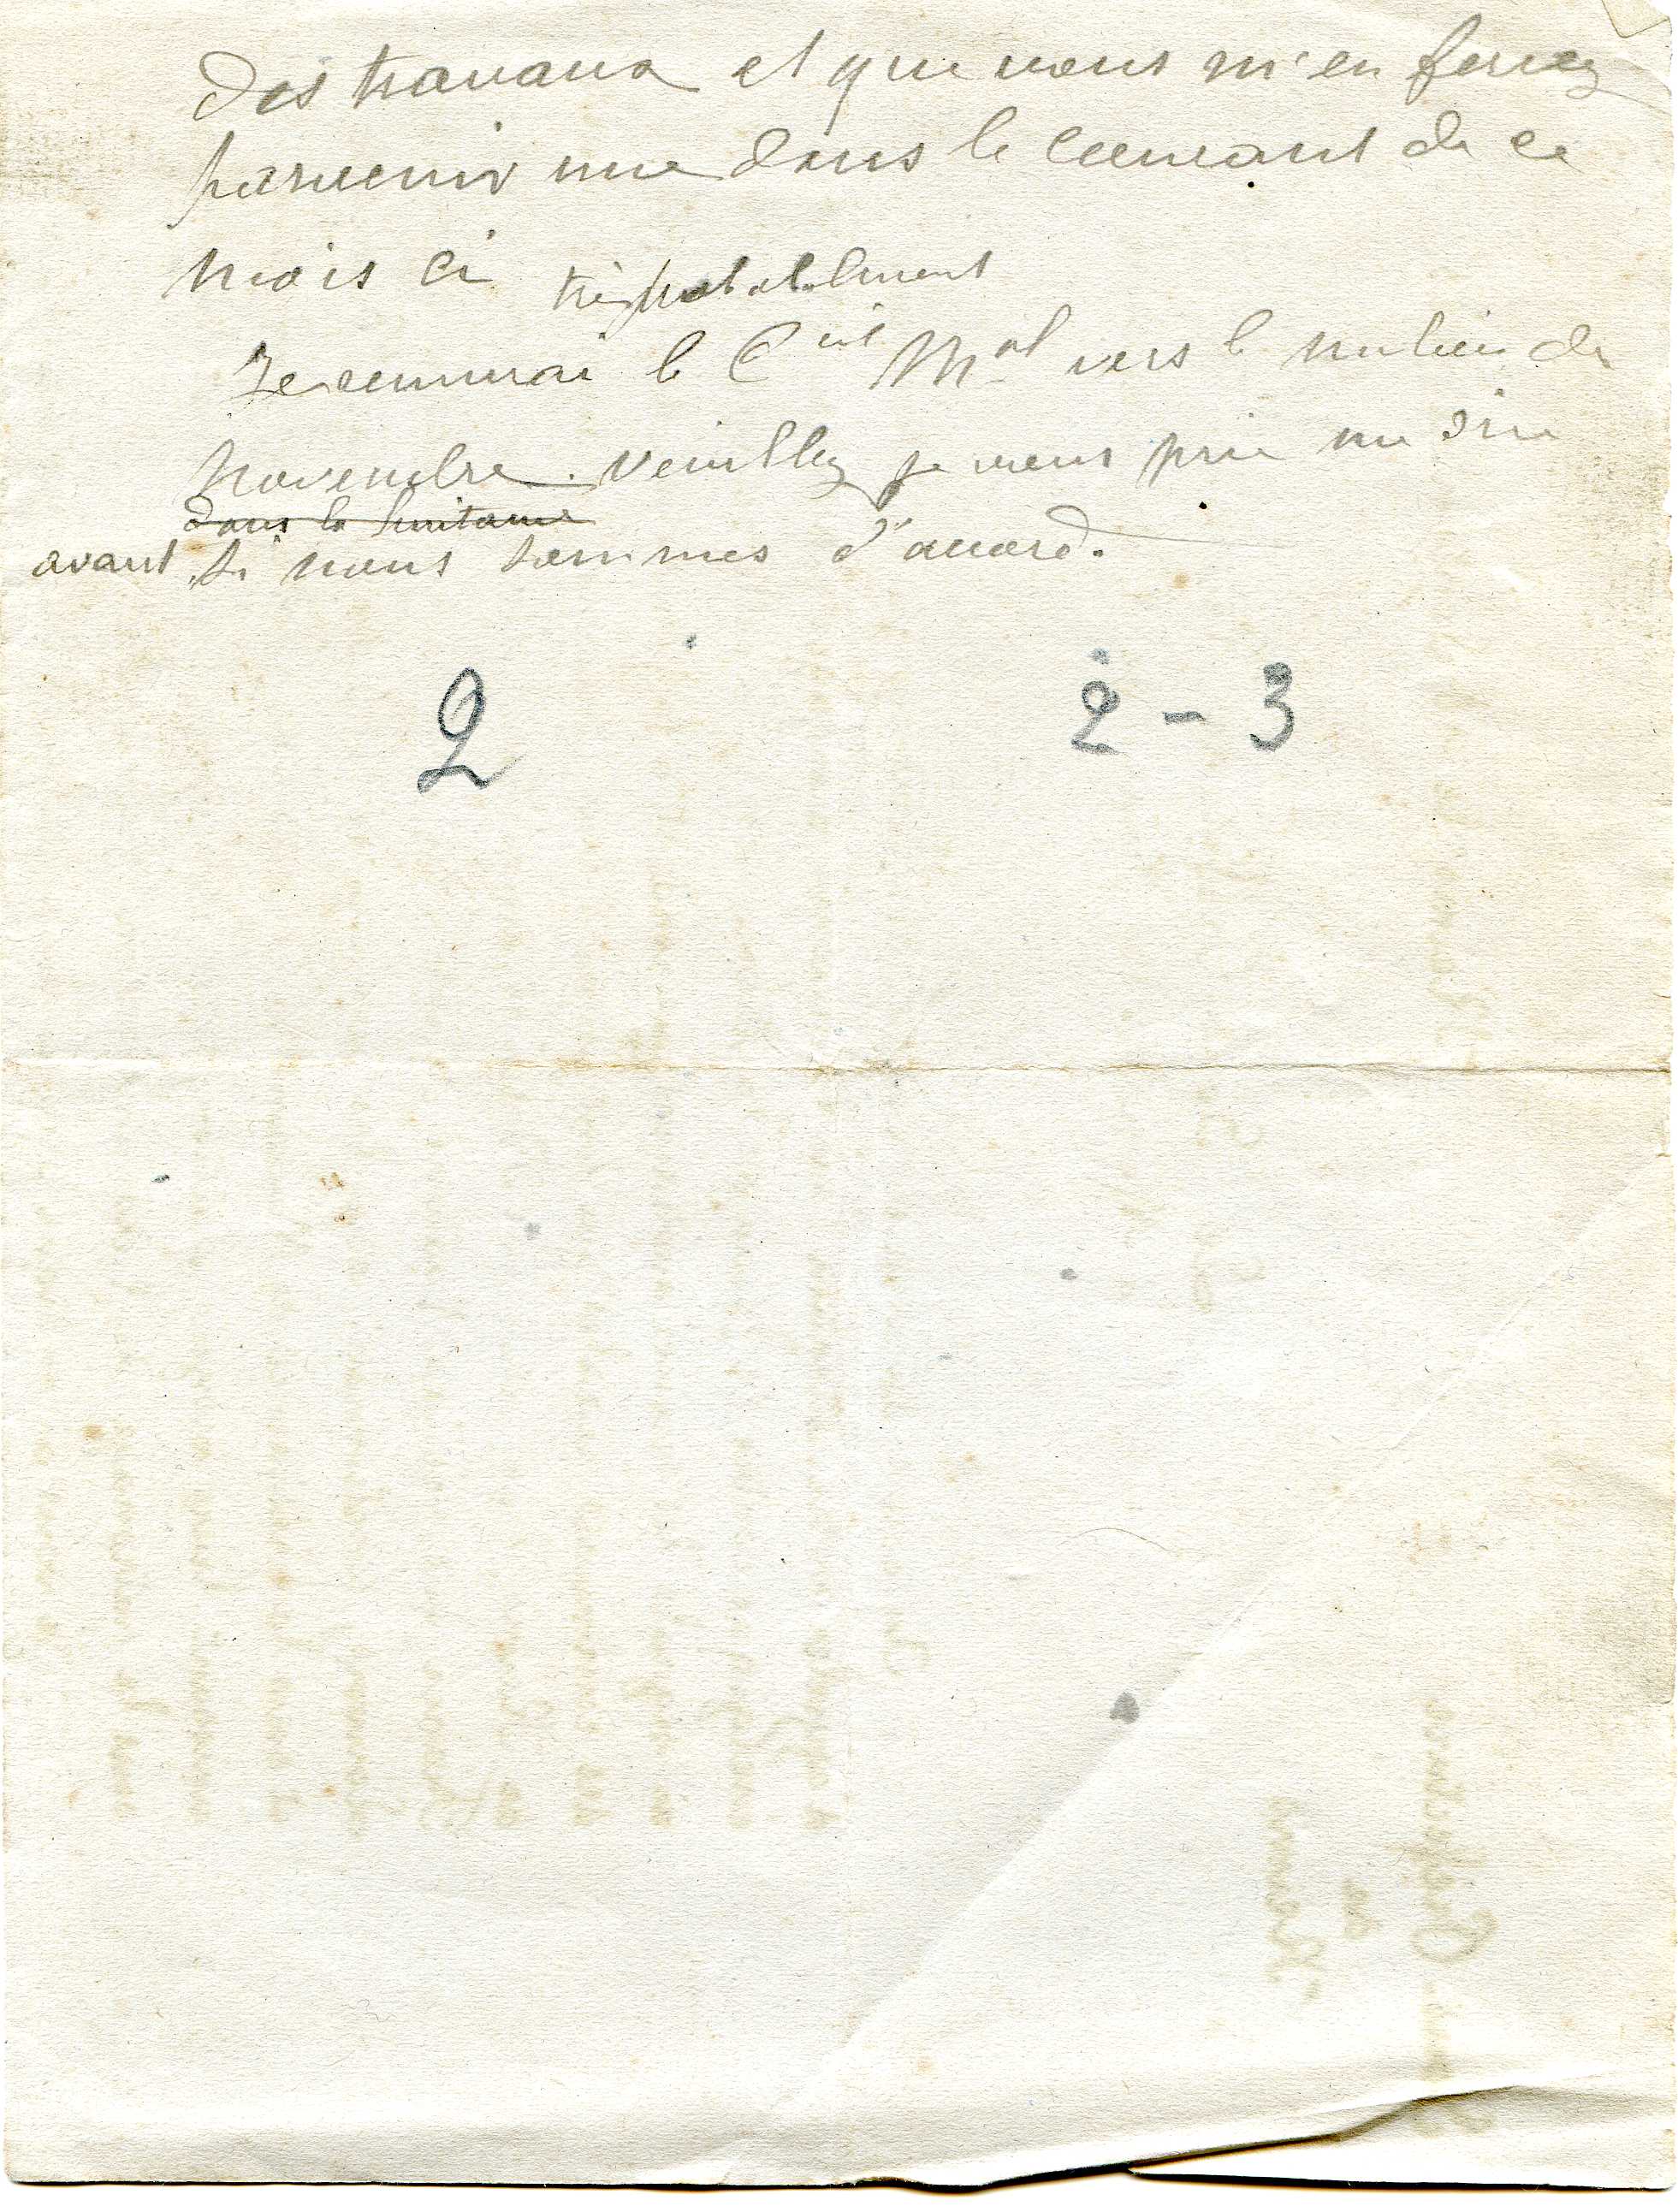 des travaux et que vous m'en ferez
parvenir une dans le courant de ce
mois ci très probablement
Je reunirai le C^eil M^al vers le milieu de
Novembre. Veuillez je vous prie me dire
dans la huitaine
avant si nous sommes d'accord.
2 2 - 3